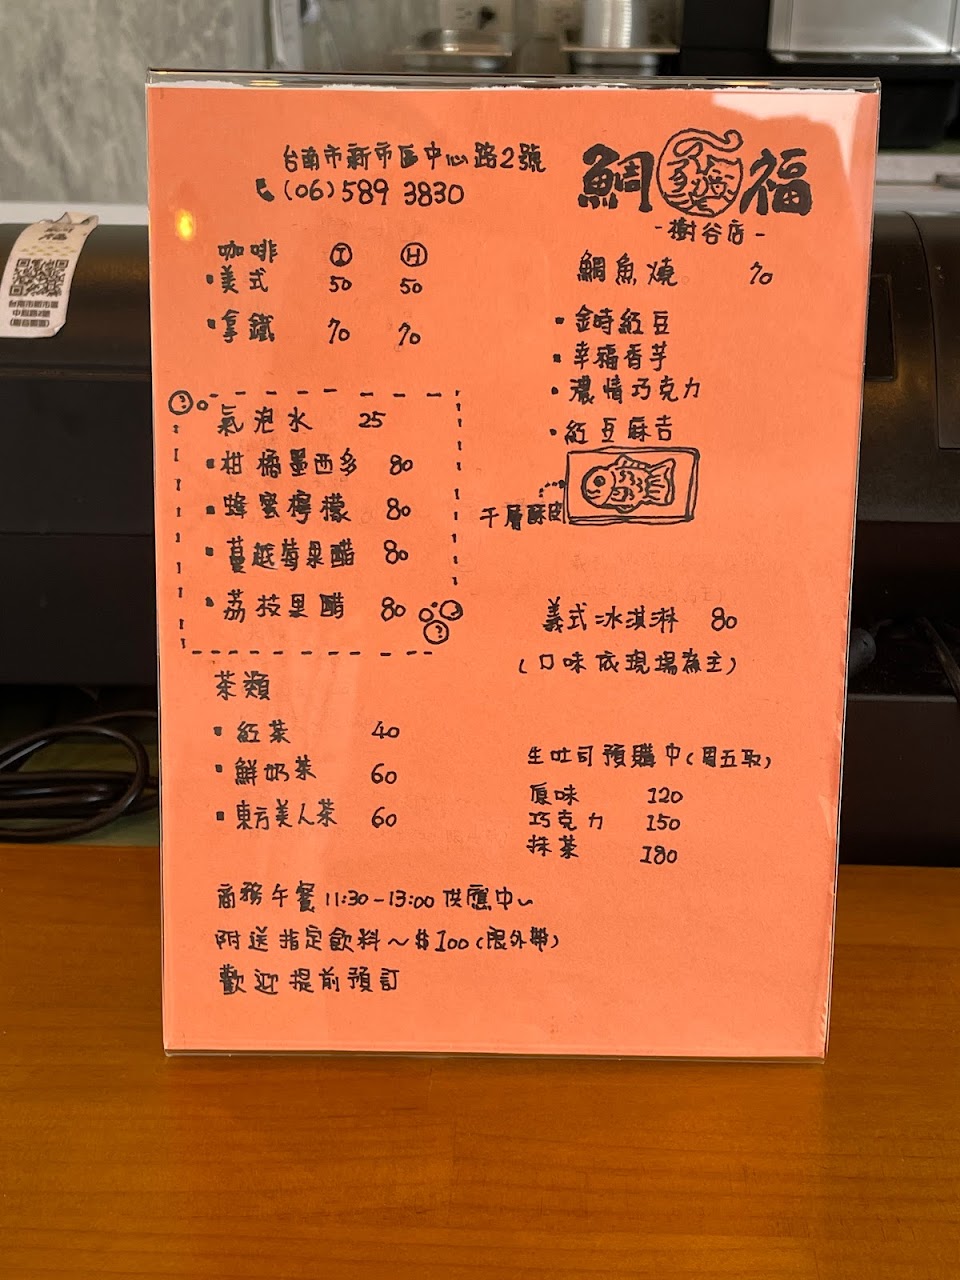 台南市新市區中心路2號
(06)589 3830
鯛福
-樹谷店-
咖啡 I H
・美式 50 50
・拿鐵 70 70
氣泡水 25
・柑橘墨西多 80
・蜂蜜檸檬 80
・蔓越莓果醋 80
・荔枝果醋 80
茶類
・紅茶 40
・鮮奶茶 60
・東方美人茶 60
鯛魚燒 70
・金時紅豆
・幸福香芋
・濃情巧克力
・紅豆麻吉
千層酥皮
義式冰淇淋 80
(口味依現場為主)
生吐司預購中(周五取)
原味 120
巧克力 150
抹茶 180
商務午餐 11:30-13:00 供應中~
附送指定飲料~$100(限外帶)
歡迎提前預訂